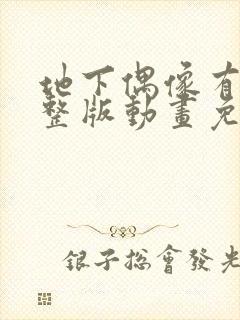 地下偶像有
整版動畫免
銀子總會發光